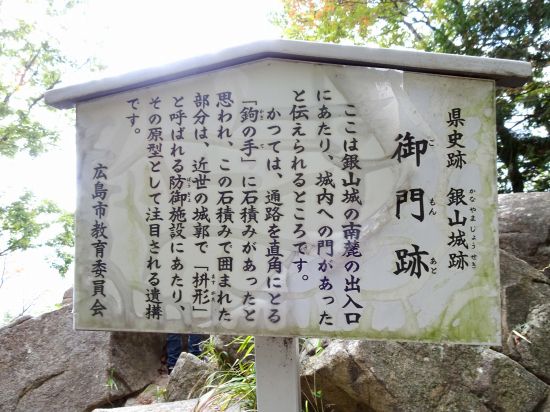 県史跡 銀山城跡
かなやまじょうせき
御門跡
ごもんあと
ここは銀山城の南麓の出入口
にあたり、城内への門があった
と伝えられるところです。
かつては、通路を直角にとる
「鉤の手」に石積みがあったと
思われ、この石積みで囲まれた
部分は、近世の城郭で「枡形」
と呼ばれる防御施設にあたり、
その原型として注目される遺構
です。
広島市教育委員会